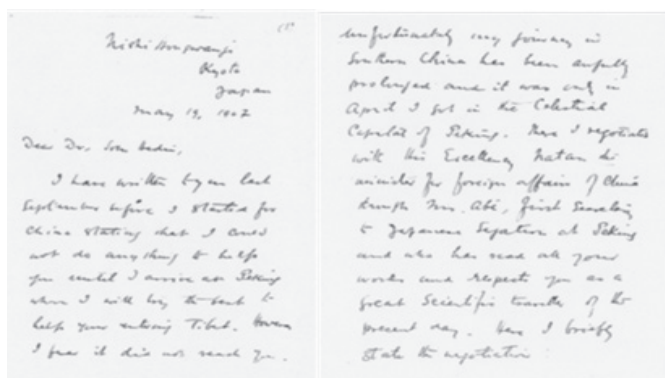 Nishi Hongwanji
Kyoto
Japan
May 19, 1907
Dear Dr. Sven Hedin,
I have written to you last
September before I started for
China stating that I could
not do anything to help
you until I arrive at Peking
when I will try the best to
help your entering Tibet. However
I fear it did not reach you.
Unfortunately my journey in
Southern China has been awfully
prolonged and it was only in
April I got in the Celestial
Capital of Peking. There I negotiated
with His Excellency Natan
minister for foreign affairs of China
through Mr. Abe, first Secretary
to Japanese Legation at Peking
and who has read all your
works and respects you as a
great Scientific traveller of the
present day. Here I briefly
state the negotiation :